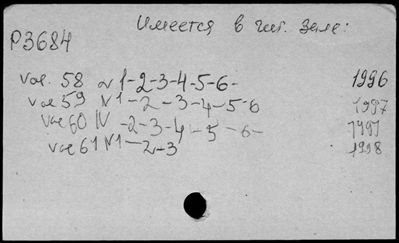 Имеется в чит. зале:
P3684
Vol. 58 N 1-2-3-4-5-6- 1996
Vol 59 N 1-2-3-4-5-6 1997
Vol 60 N -2-3-4-5-6- 1997
Vol 61 N 1-2-3 1998